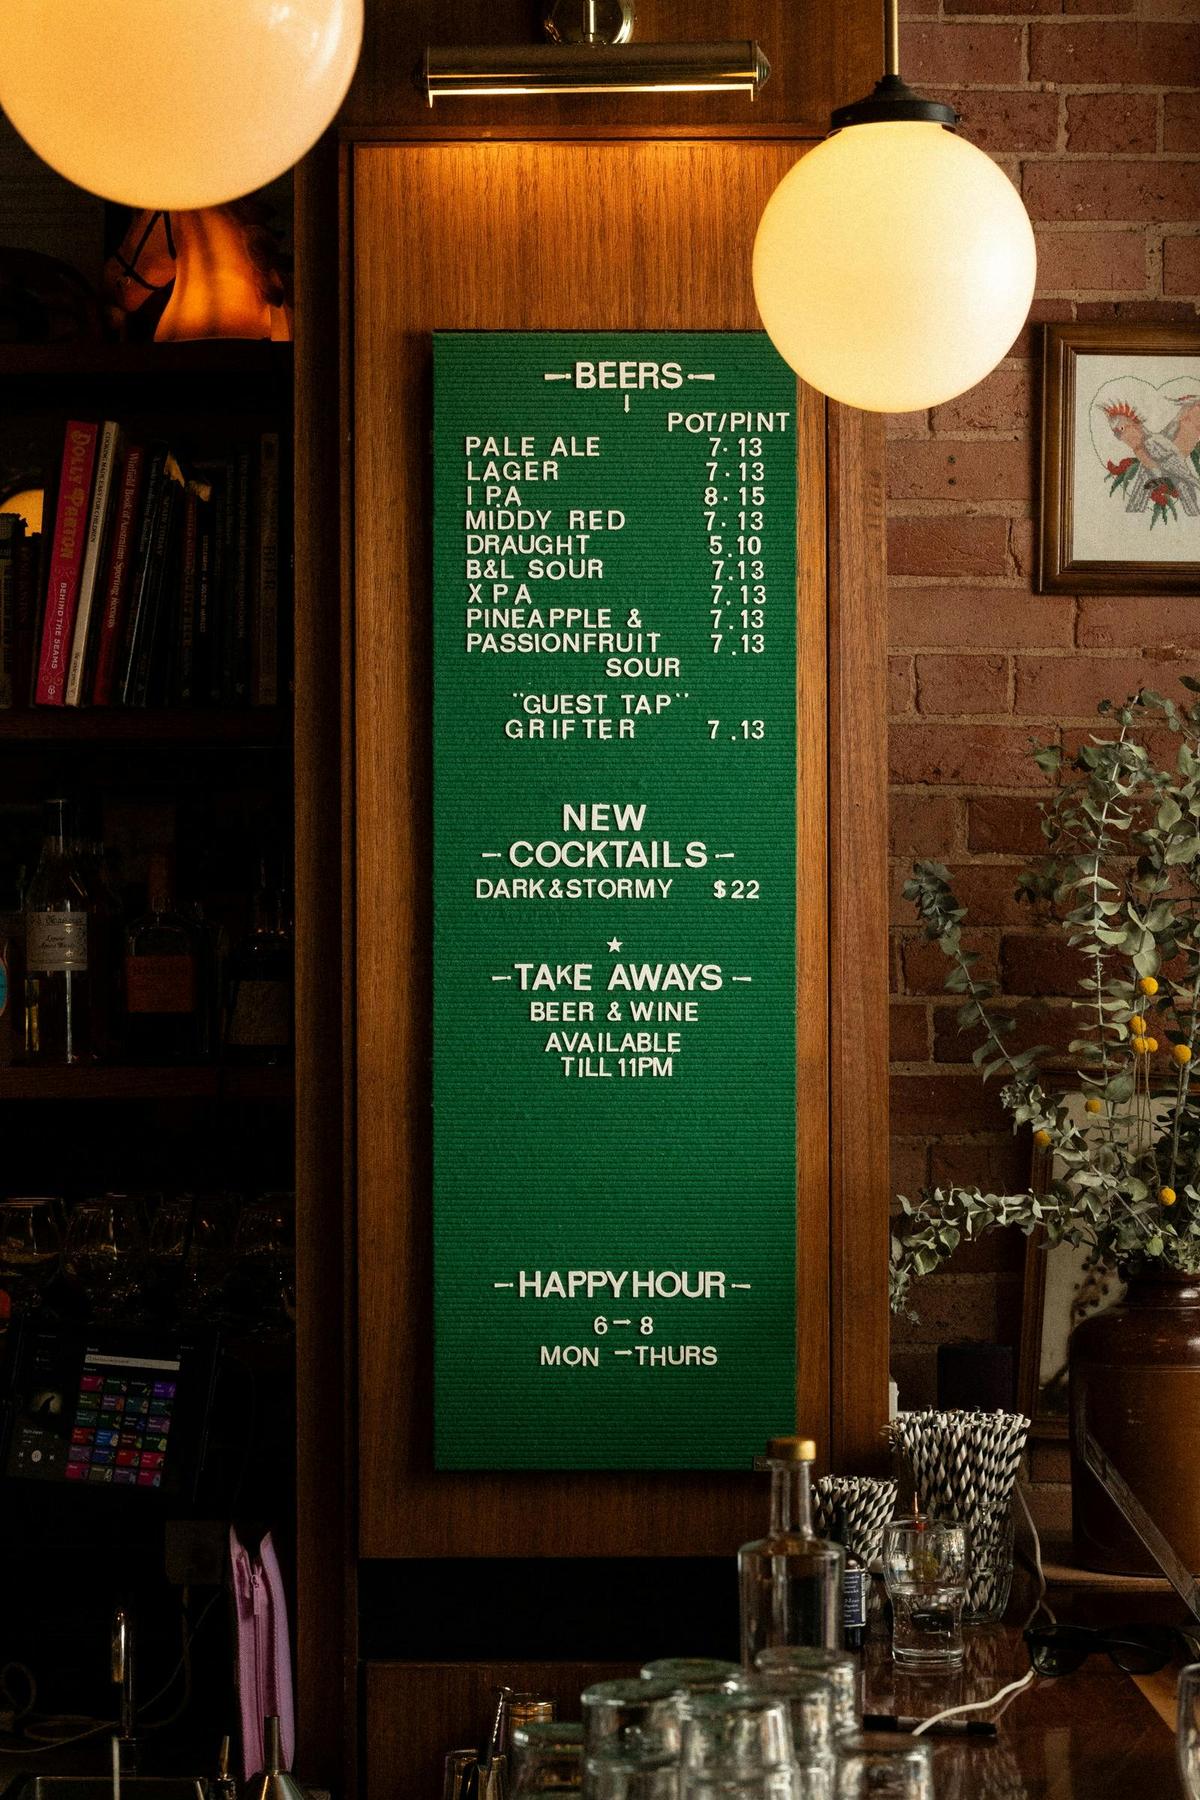 DOLLY PARTON
BEHIND THE SEAMS
-BEERS-
↓
POT/PINT
PALE ALE 7·13
LAGER 7·13
IPA 8·15
MIDDY RED 7·13
DRAUGHT 5.10
B&L SOUR 7.13
XPA 7.13
PINEAPPLE & 7.13
PASSIONFRUIT 7.13
SOUR
"GUEST TAP"
GRIFTER 7.13
NEW
-COCKTAILS-
DARK&STORMY $22
★
-TAKE AWAYS-
BEER & WINE
AVAILABLE
TILL 11PM
-HAPPY HOUR-
6→8
MON →THURS